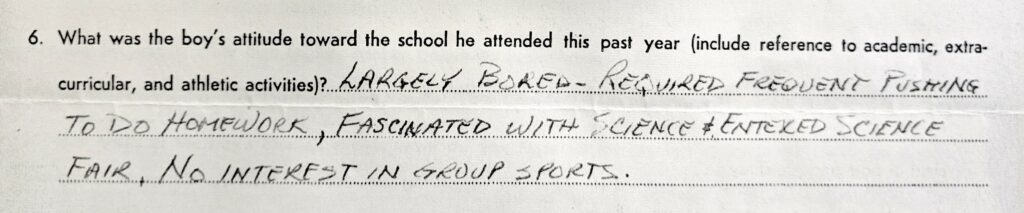 6. What was the boy's attitude toward the school he attended this past year (include reference to academic, extra-
curricular, and athletic activities)? LARGELY BORED - REQUIRED FREQUENT PUSHING
TO DO HOMEWORK, FASCINATED WITH SCIENCE & ENTERED SCIENCE
FAIR, NO INTEREST IN GROUP SPORTS.